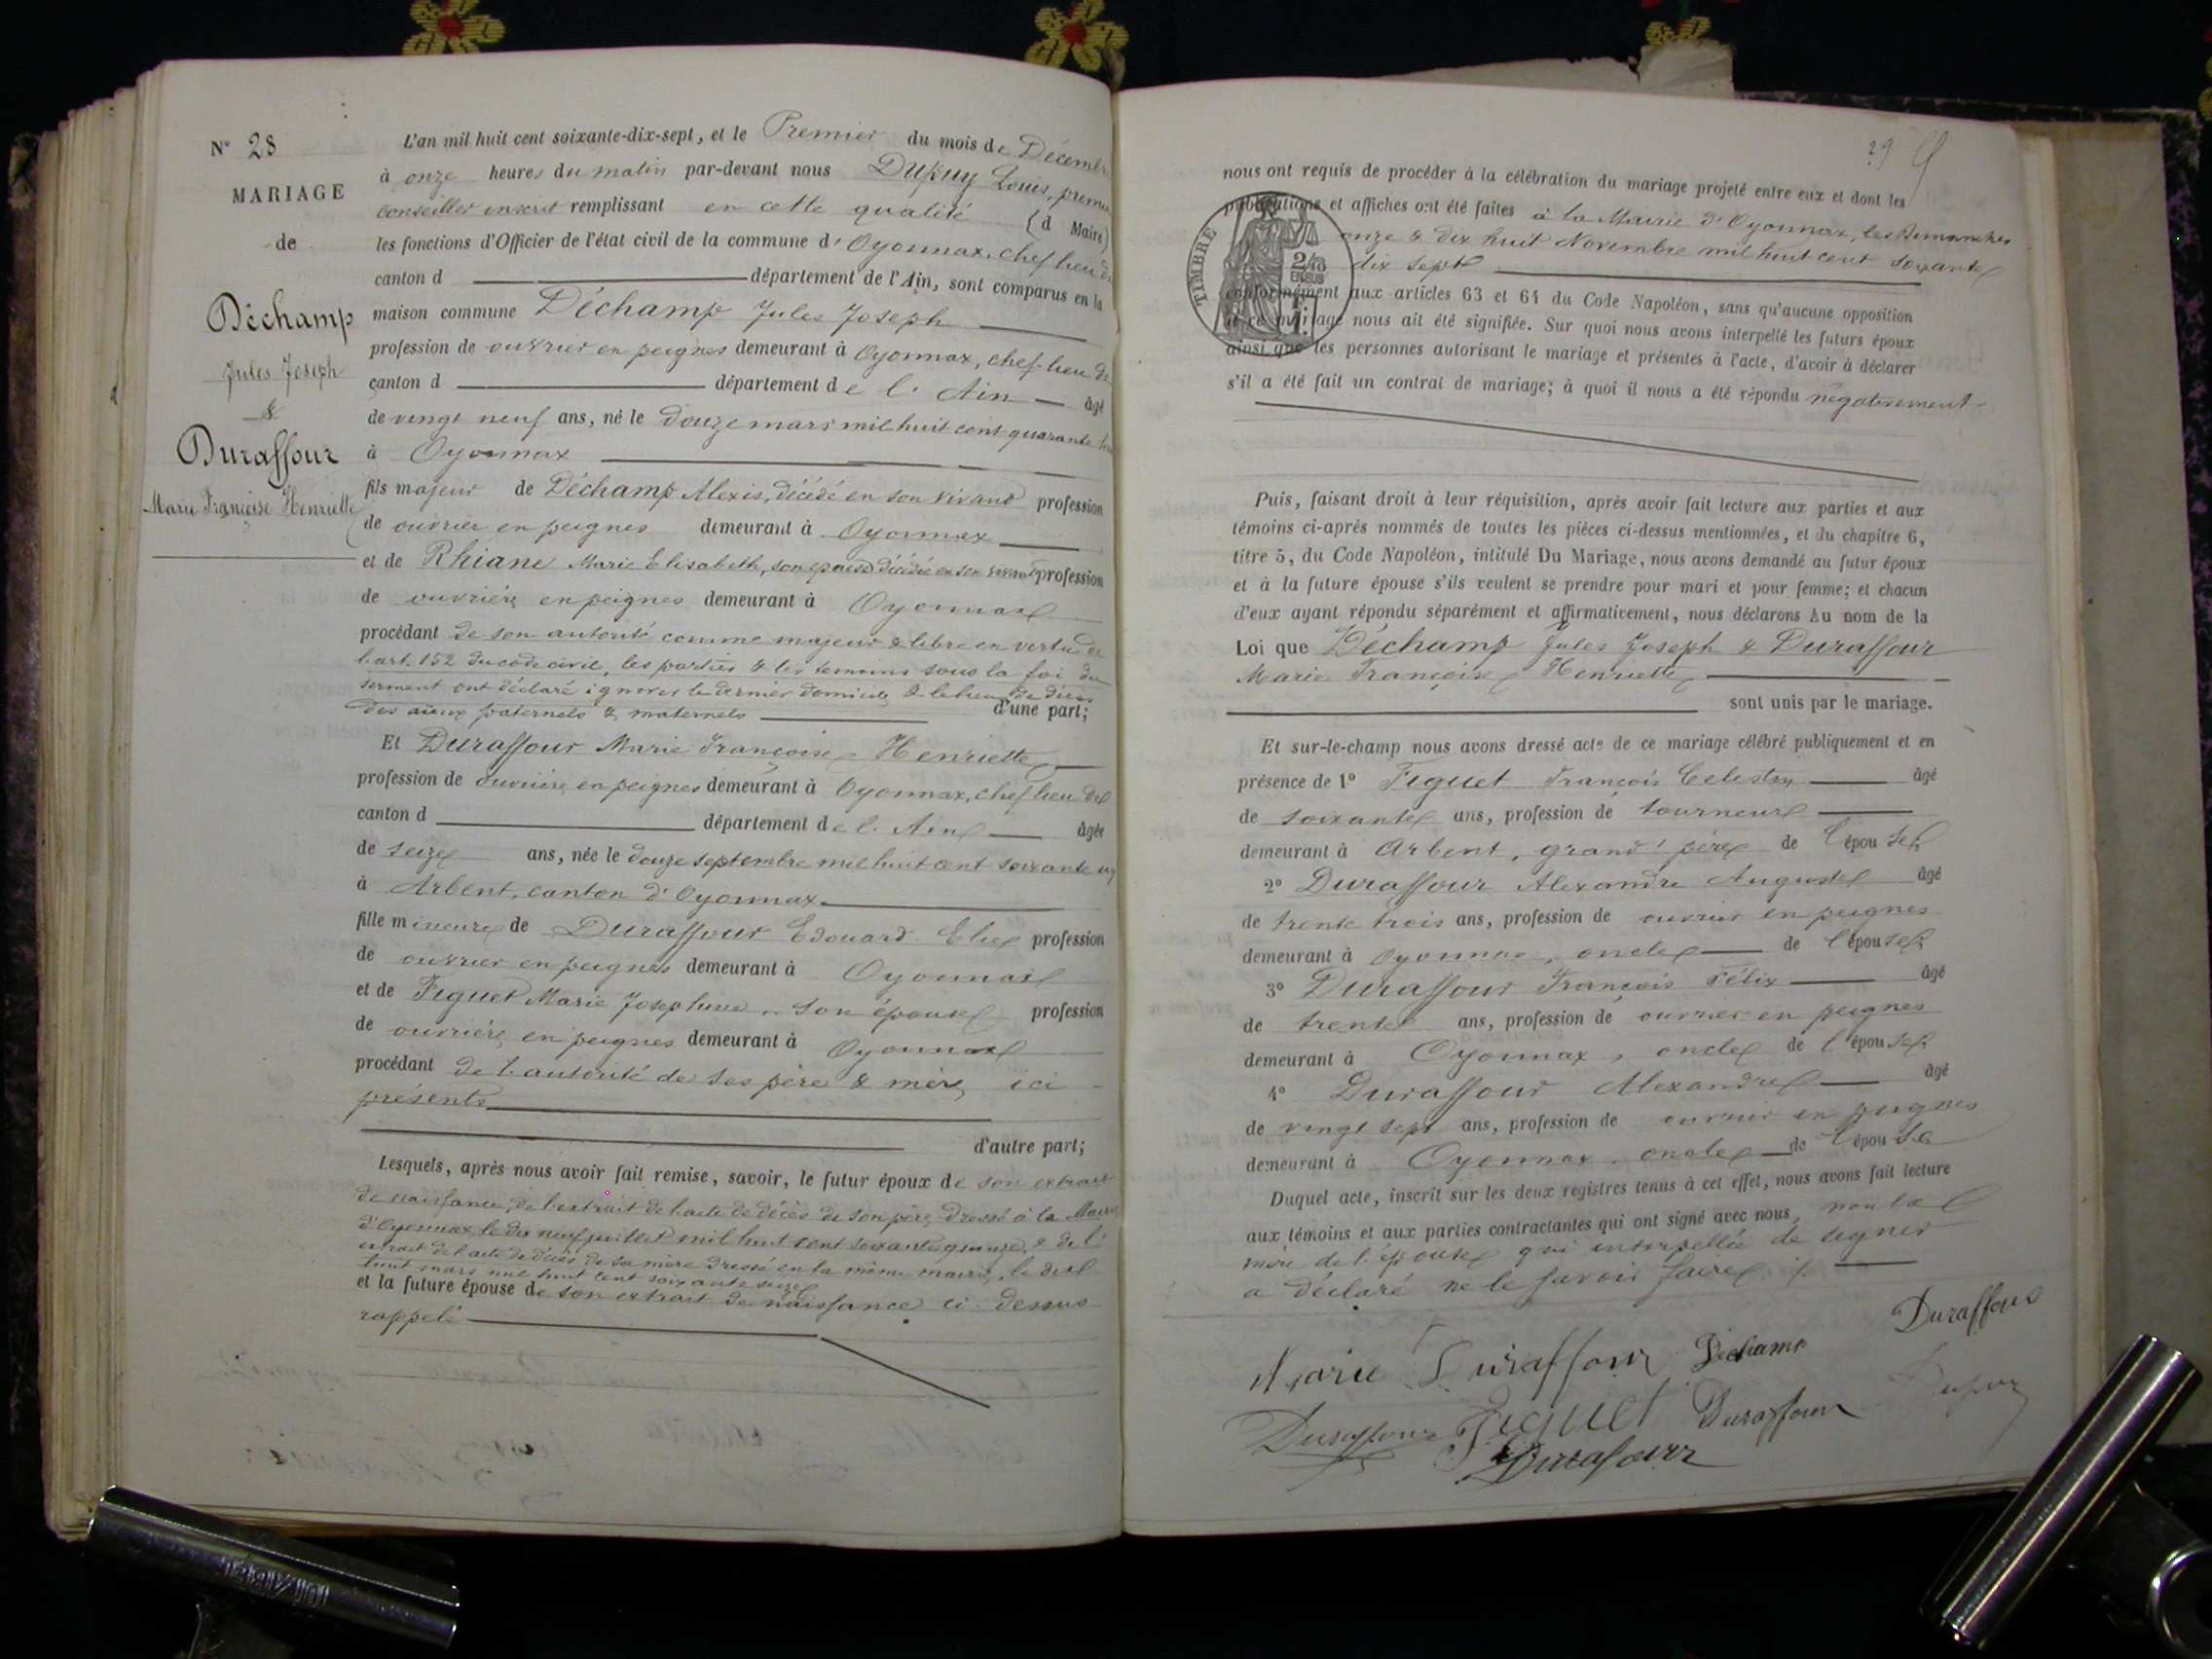 N° 28
MARIAGE
de
Déchamp
Jules Joseph
&
Duraffour
Marie Françoise Henriette
L'an mil huit cent soixante-dix-sept, et le Premier du mois de Décembre
à onze heures du matin par-devant nous Dupuy Louis, premier
conseiller inscrit remplissant en cette qualité (d Maire)
les fonctions d'Officier de l'état civil de la commune d'Oyonnax, chef lieu de
canton d département de l'Ain, sont comparus en la
maison commune Déchamp Jules Joseph
profession de ouvrier en peignes demeurant à Oyonnax, chef-lieu de
canton d département de l'Ain âgé
de vingt neuf ans, né le douze mars mil huit cent quarante huit
à Oyonnax
fils majeur de Déchamp Alexis, décédé en son vivant profession
de ouvrier en peignes demeurant à Oyonnax
et de Rhiane Marie Elisabeth, son épouse décédée en son vivant profession
de ouvrière en peignes demeurant à Oyonnax
procédant de son autorité comme majeur & libre en vertu de
l'art. 152 du code civil, les parties & les témoins sous la foi du
serment ont déclaré ignorer le dernier domicile & le lieu de décès
des aïeux paternels & maternels d'une part;
Et Duraffour Marie Françoise Henriette
profession de ouvrière en peignes demeurant à Oyonnax, chef lieu de
canton d département de l'Ain âgée
de seize ans, née le douze septembre mil huit cent soixante un
à Arbent, canton d'Oyonnax
fille mineure de Duraffour Edouard Elie profession
de ouvrier en peignes demeurant à Oyonnax
et de Figuet Marie Josephine, son épouse profession
de ouvrière en peignes demeurant à Oyonnax
procédant de l'autorité de ses père & mère, ici
présents
d'autre part;
Lesquels, après nous avoir fait remise, savoir, le futur époux de son extrait
de naissance, de l'extrait de l'acte de décès de son père, dressé à la Mairie
d'Oyonnax le dix neuf juillet mil huit cent soixante quinze, & de l'
extrait de l'acte de décès de sa mère dressé en la même mairie, le dix
huit mars mil huit cent soixante seize
et la future épouse de son extrait de naissance ci-dessus
rappelé
29
nous ont requis de procéder à la célébration du mariage projeté entre eux et dont les
publications et affiches ont été faites à la Mairie d'Oyonnax, les Dimanches
onze & dix huit Novembre mil huit cent soixante
dix sept
TIMBRE
2/10
EN SUS
conformément aux articles 63 et 64 du Code Napoléon, sans qu'aucune opposition
à ce mariage nous ait été signifiée. Sur quoi nous avons interpellé les futurs époux
ainsi que les personnes autorisant le mariage et présentes à l'acte, d'avoir à déclarer
s'il a été fait un contrat de mariage; à quoi il nous a été répondu négativement
Puis, faisant droit à leur réquisition, après avoir fait lecture aux parties et aux
témoins ci-après nommés de toutes les pièces ci-dessus mentionnées, et du chapitre 6,
titre 5, du Code Napoléon, intitulé Du Mariage, nous avons demandé au futur époux
et à la future épouse s'ils veulent se prendre pour mari et pour femme; et chacun
d'eux ayant répondu séparément et affirmativement, nous déclarons Au nom de la
Loi que Déchamp Jules Joseph & Duraffour
Marie Françoise Henriette
sont unis par le mariage.
Et sur-le-champ nous avons dressé acte de ce mariage célébré publiquement et en
présence de 1° Figuet François Celestin âgé
de soixante ans, profession de tourneur
demeurant à Arbent, grand'père de l'épouse
2° Duraffour Alexandre Auguste âgé
de trente trois ans, profession de ouvrier en peignes
demeurant à Oyonnax, oncle de l'épouse
3° Duraffour François Félix âgé
de trente ans, profession de ouvrier en peignes
demeurant à Oyonnax, oncle de l'épouse
4° Duraffour Alexandre âgé
de vingt sept ans, profession de ouvrier en peignes
demeurant à Oyonnax oncle de l'épouse
Duquel acte, inscrit sur les deux registres tenus à cet effet, nous avons fait lecture
aux témoins et aux parties contractantes qui ont signé avec nous, non la
mère de l'épouse qui interpellée de signer
a déclaré ne le savoir faire
Marie Duraffour Déchamp Duraffour
Duraffour Figuet Duraffour Dupuy
Duraffour